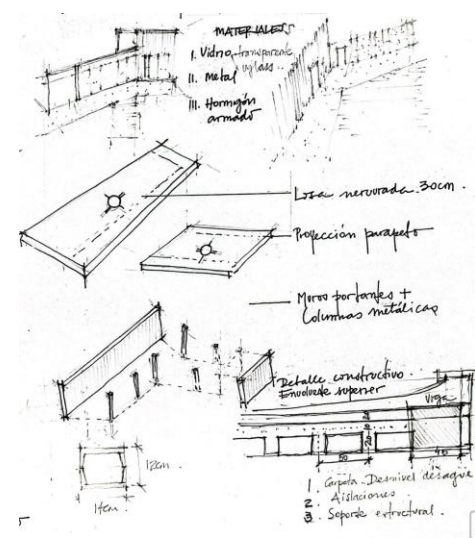 MATERIALES
I. Vidrio transparente
uglass
II. Metal
III. Hormigón
armado
Losa nervurada. 30cm.
Proyección parapeto
Muros portantes +
Columnas metálicas
Detalle constructivo
Envolvente superior
Viga
20
50
40
12cm
14cm
1. Carpeta. Desnivel desague
2. Aislaciones
3. Soporte estructural.